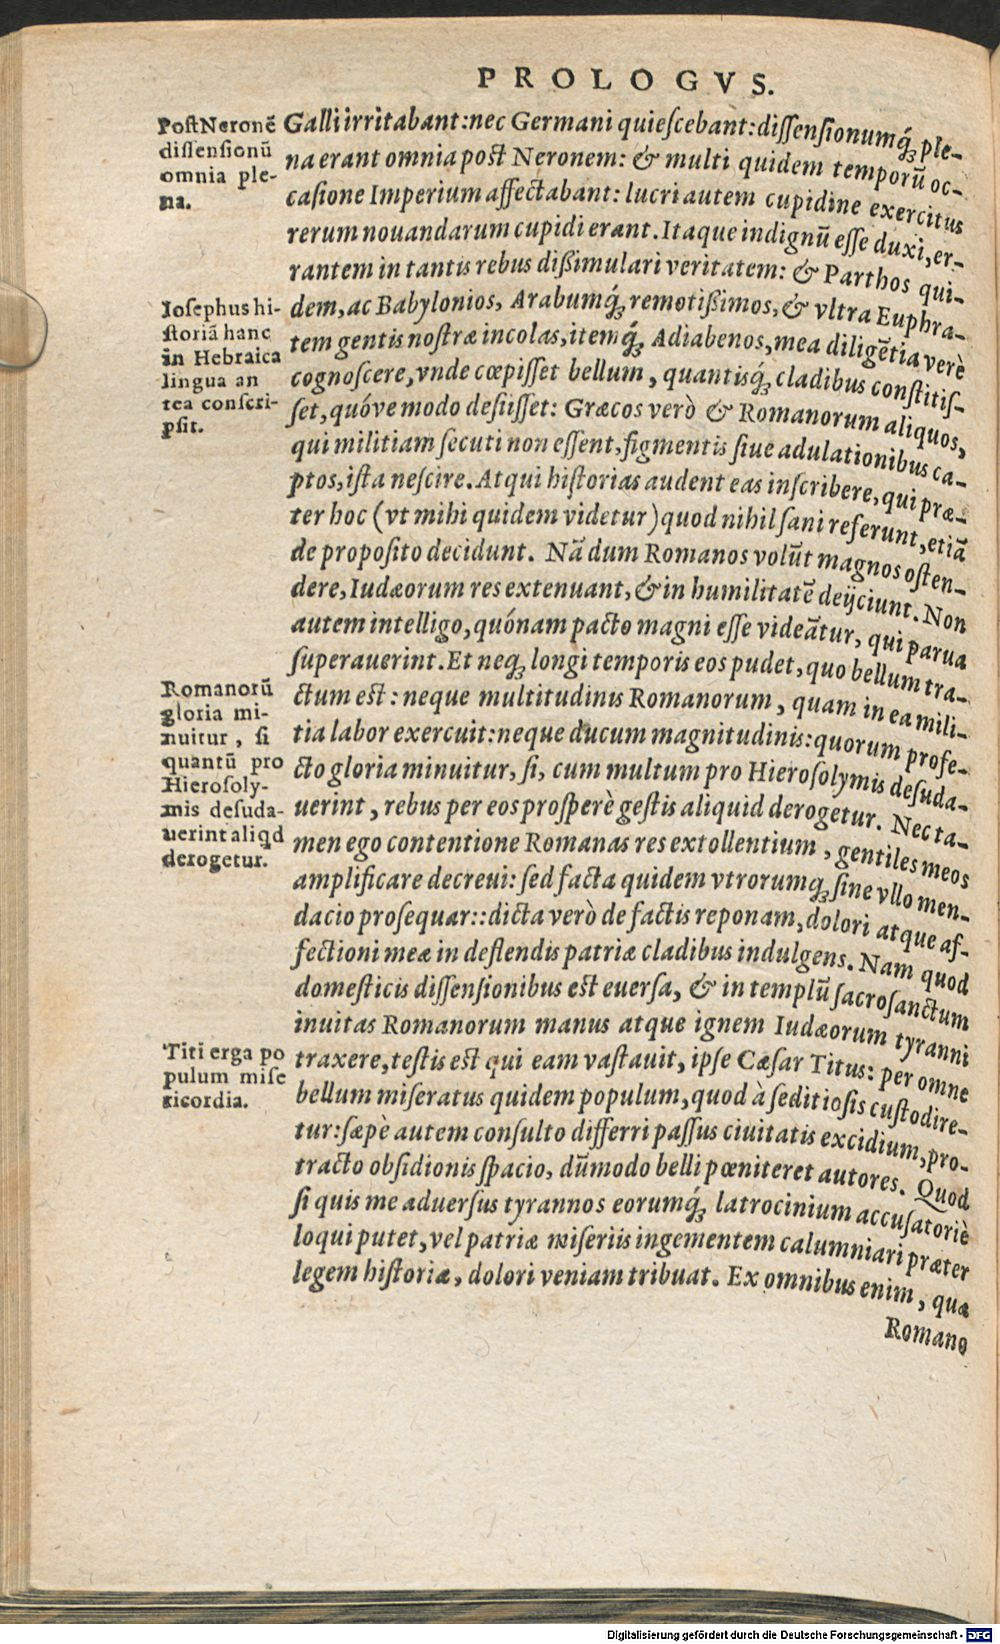 PROLOGVS.
Galli irritabant: nec Germani quieſcebant: diſſenſionumq́; ple-
na erant omnia post Neronem: & multi quidem temporũ oc-
caſione Imperium affectabant: lucri autem cupidine exercitus
rerum nouandarum cupidi erant. Itaque indignũ eſſe duxi, er-
rantem in tantis rebus dißimulari veritatem: & Parthos qui-
dem, ac Babylonios, Arabumq́; remotißimos, & vltra Euphra-
tem gentis nostræ incolas, itemq́; Adiabenos, mea diligẽtia verè
cognoſcere, vnde cœpiſſet bellum, quantisq́; cladibus conſtitiſ-
ſet, quóve modo deſiiſſet: Græcos verò & Romanorum aliquos,
qui militiam ſecuti non eſſent, figmentis ſiue adulationibus ca-
ptos, iſta neſcire. Atqui hiſtorias audent eas inſcribere, qui præ-
ter hoc (vt mihi quidem videtur) quod nihil ſani referunt, etiã
de propoſito decidunt. Nã dum Romanos volũt magnos oſten-
dere, Iudæorum res extenuant, & in humilitatẽ deijciunt. Non
autem intelligo, quónam pacto magni eſſe videãtur, qui parua
ſuperauerint. Et neq; longi temporis eos pudet, quo bellum tra-
ctum est: neque multitudinis Romanorum, quam in ea mili-
tia labor exercuit: neque ducum magnitudinis: quorum profe-
cto gloria minuitur, ſi, cum multum pro Hieroſolymis deſuda-
uerint, rebus per eos proſperè geſtis aliquid derogetur. Nec ta-
men ego contentione Romanas res extollentium, gentiles meos
amplificare decreui: ſed facta quidem vtrorumq; ſine vllo men-
dacio proſequar:: dicta verò de factis reponam, dolori atque af-
fectioni meæ in deflendis patriæ cladibus indulgens. Nam quod
domeſticis diſſenſionibus est euerſa, & in templũ ſacroſanctum
inuitas Romanorum manus atque ignem Iudæorum tyranni
traxere, teſtis est qui eam vaſtauit, ipſe Cæſar Titus: per omne
bellum miſeratus quidem populum, quod à ſeditioſis cuſtodire-
tur: ſæpè autem conſulto differri paſſus ciuitatis excidium, pro-
tracto obſidionis ſpacio, dũmodo belli pœniteret autores. Quod
ſi quis me aduerſus tyrannos eorumq́; latrocinium accuſatoriè
loqui putet, vel patriæ miſeriis ingementem calumniari præter
legem hiſtoriæ, dolori veniam tribuat. Ex omnibus enim, quæ
Romano
Poſt Neronẽ
diſſenſionũ
omnia ple-
na.
Ioſephus hi-
ſtoriã hanc
in Hebraica
lingua an
tea conſcri-
pſit.
Romanorũ
gloria mi-
nuitur, ſi
quantũ pro
Hieroſoly-
mis deſuda-
uerint aliqd
derogetur.
Titi erga po
pulum miſe
ricordia.
Digitalisierung gefördert durch die Deutsche Forschungsgemeinschaft - DFG